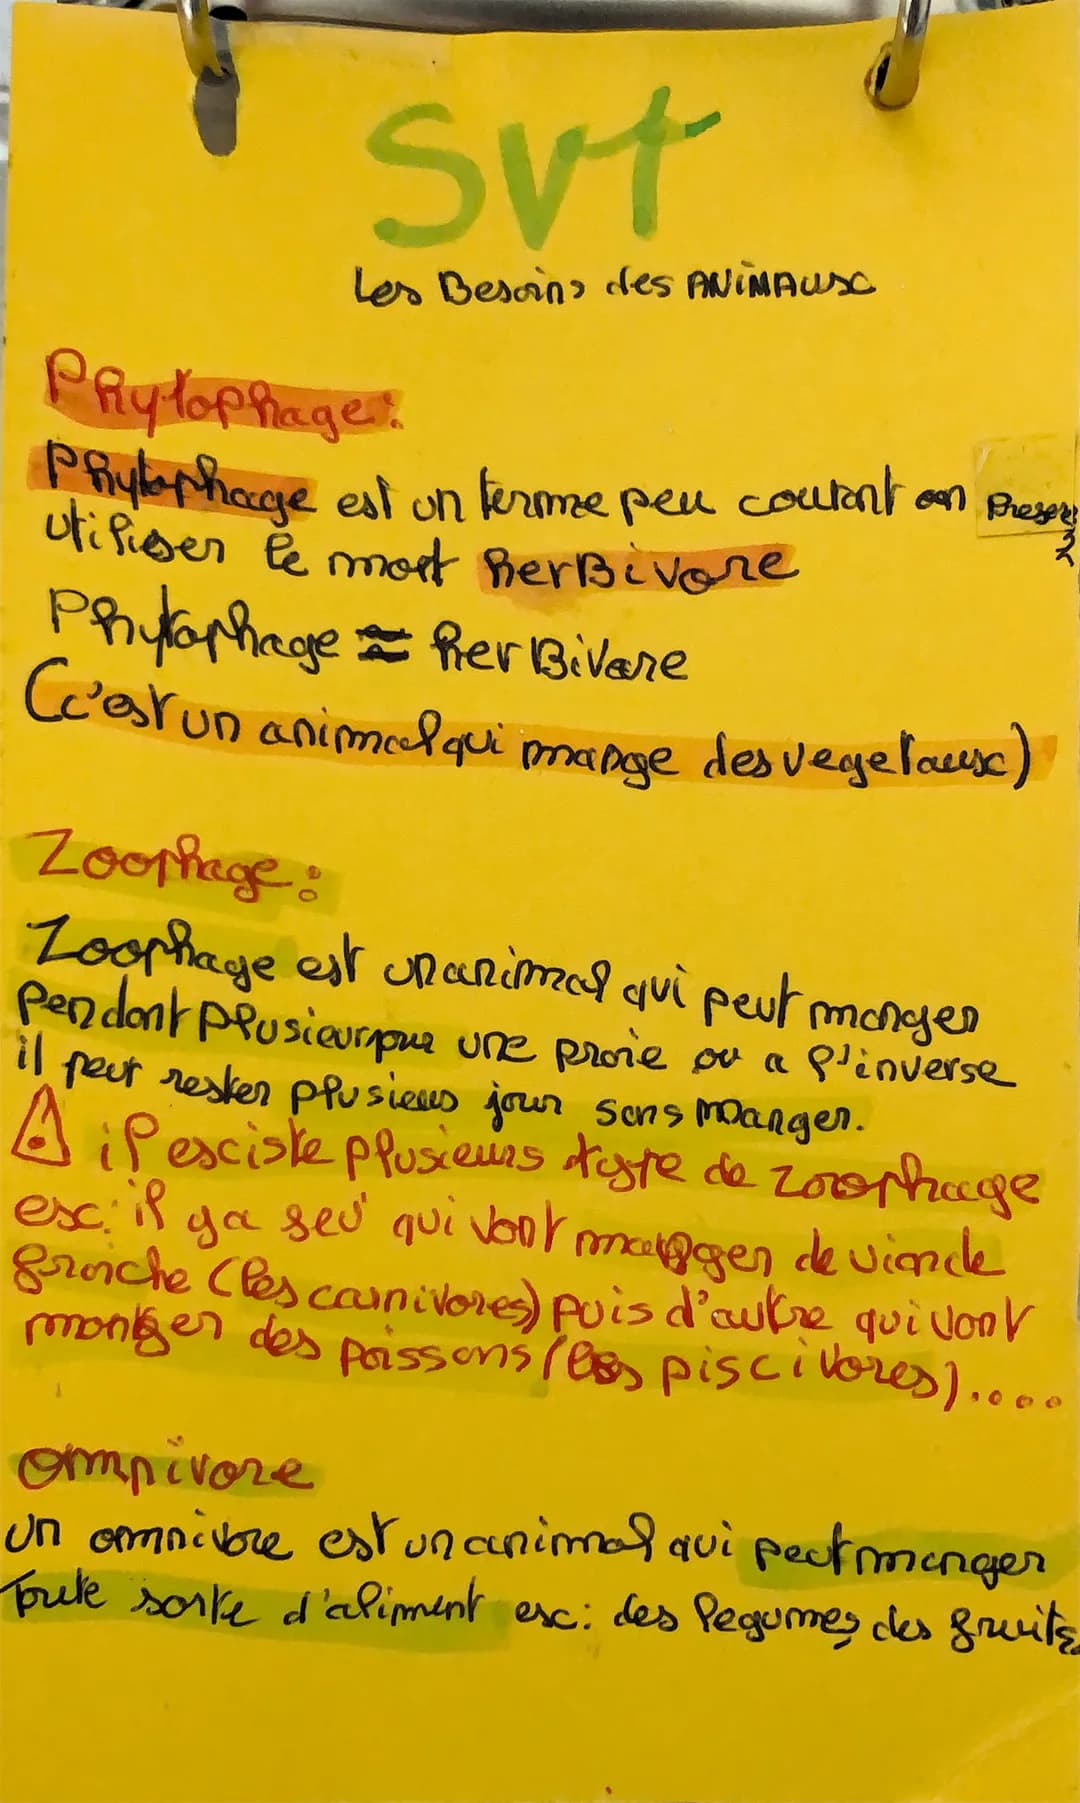 Svt
Les Besoins des ANiMAux
Phytophage:
Phytophage est un terme peu courant on
utiliser le mot herBivore
Phytophage ≈ herBivore
(c'est un animal qui mange des vegetaux)
Zoophage:
Zoophage est un animal qui peut manger
pendant plusieur une proie ou a l'inverse
il peut rester plusieurs jour sans manger.
⚠ il existe plusieurs type de zoophage
ex: il ya seu qui vont manger de viande
fraiche (les carnivores) puis d'autre qui vont
manger des poissons (les piscivores)....
omnivore
un omnivore est un animal qui peut manger
Toute sorte d'aliment ex: des legumes, des fruits